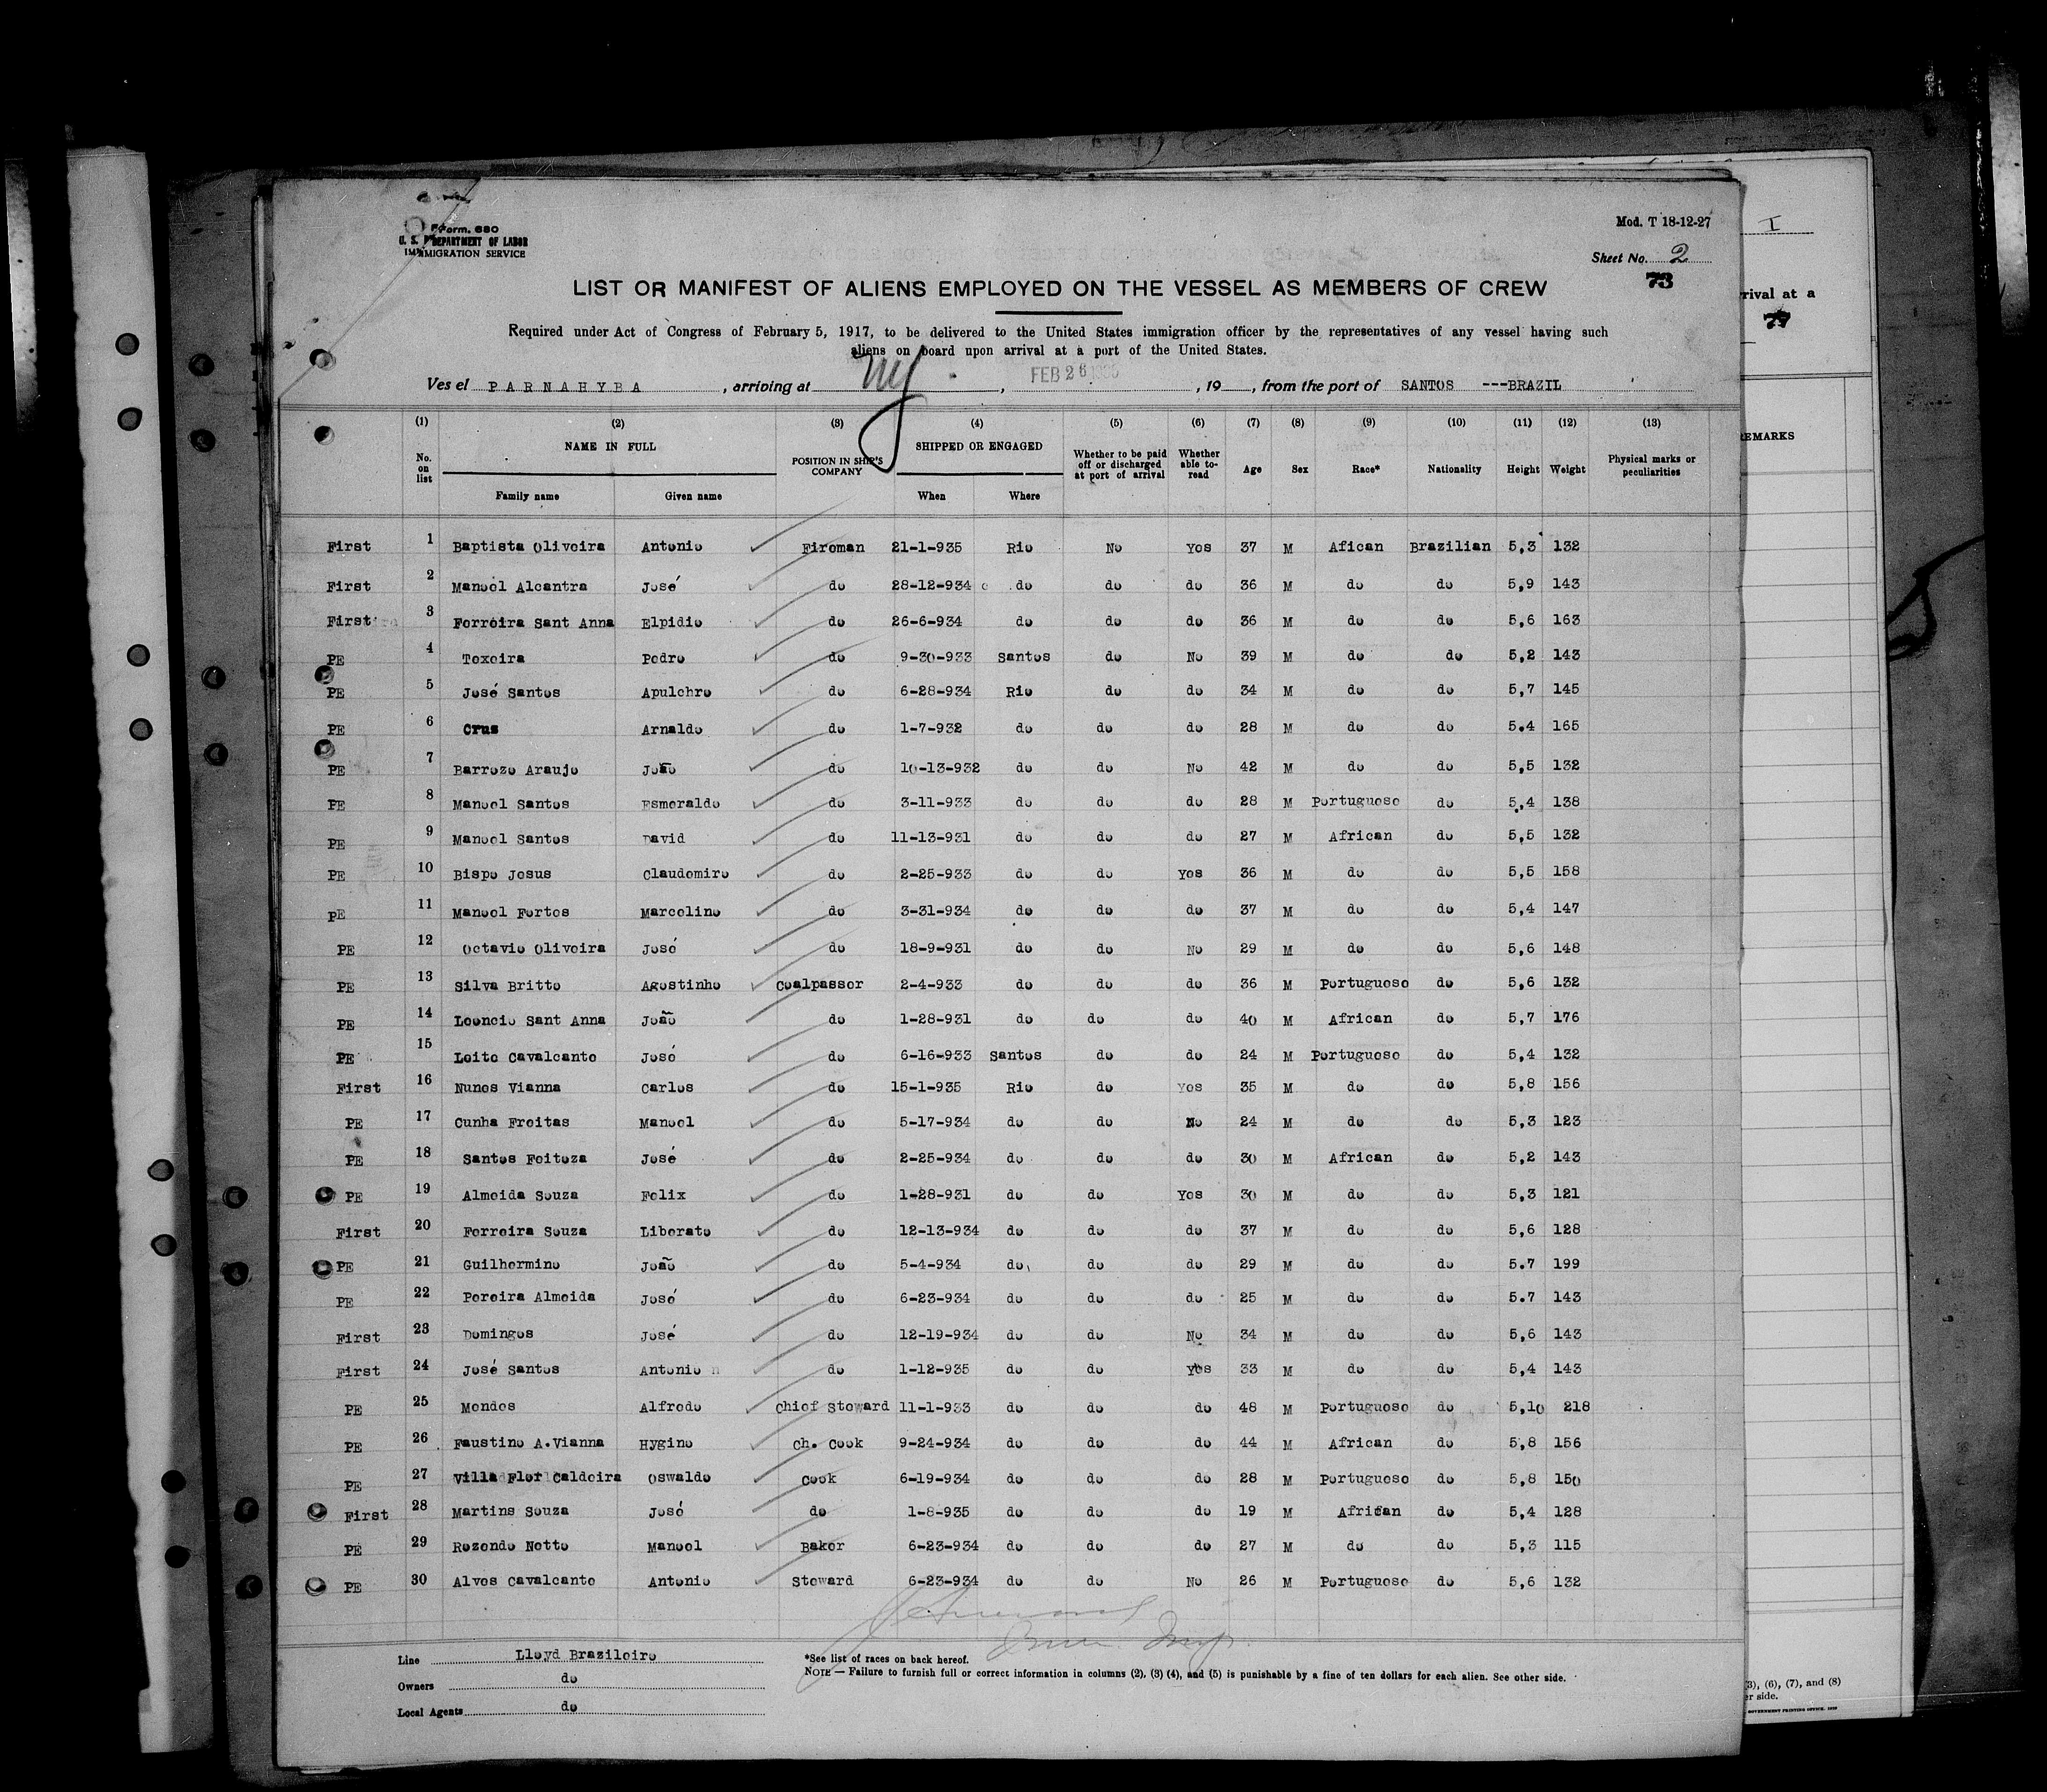 Form. 680
U. S. DEPARTMENT OF LABOR
IMMIGRATION SERVICE
Mod. T 18-12-27
Sheet No. 2
73
LIST OR MANIFEST OF ALIENS EMPLOYED ON THE VESSEL AS MEMBERS OF CREW
Required under Act of Congress of February 5, 1917, to be delivered to the United States immigration officer by the representatives of any vessel having such
aliens on board upon arrival at a port of the United States.
Ves el PARNAHYBA , arriving at NY , FEB 26 1935 , 19 , from the port of SANTOS ---BRAZIL
(1) (2) (3) (4) (5) (6) (7) (8) (9) (10) (11) (12) (13)
No. on list NAME IN FULL Family name Given name POSITION IN SHIP'S COMPANY SHIPPED OR ENGAGED When Where Whether to be paid off or discharged at port of arrival Whether able to- read Age Sex Race* Nationality Height Weight Physical marks or peculiarities
First 1 Baptista Oliveira Antonio Fireman 21-1-935 Rio No Yes 37 M Afican Brazilian 5,3 132
First 2 Manoel Alcantra José do 28-12-934 do do do 36 M do do 5,9 143
First 3 Ferreira Sant Anna Elpidio do 26-6-934 do do do 36 M do do 5,6 163
PE 4 Texeira Pedro do 9-30-933 Santos do No 39 M do do 5,2 143
PE 5 José Santos Apulchro do 6-28-934 Rio do do 34 M do do 5,7 145
PE 6 Crus Arnaldo do 1-7-932 do do do 28 M do do 5.4 165
PE 7 Barrozo Araujo João do 10-13-932 do do No 42 M do do 5,5 132
PE 8 Manoel Santos Esmeraldo do 3-11-933 do do do 28 M Portuguese do 5,4 138
PE 9 Manoel Santos David do 11-13-931 do do do 27 M African do 5,5 132
PE 10 Bispo Jesus Claudomiro do 2-25-933 do do Yes 36 M do do 5,5 158
PE 11 Manoel Fortes Marcolino do 3-31-934 do do do 37 M do do 5,4 147
PE 12 Octavio Oliveira José do 18-9-931 do do No 29 M do do 5,6 148
PE 13 Silva Britto Agostinho Coalpasser 2-4-933 do do do 36 M Portuguese do 5,6 132
PE 14 Leoncio Sant Anna João do 1-28-931 do do do 40 M African do 5,7 176
PE 15 Leite Cavalcante José do 6-16-933 Santos do do 24 M Portuguese do 5,4 132
First 16 Nunes Vianna Carlos do 15-1-935 Rio do Yes 35 M do do 5,8 156
PE 17 Cunha Freitas Manoel do 5-17-934 do do No 24 M do do 5,3 123
PE 18 Santos Feitoza José do 2-25-934 do do do 30 M African do 5,2 143
PE 19 Almeida Souza Felix do 1-28-931 do do Yes 30 M do do 5,3 121
First 20 Ferreira Souza Liberato do 12-13-934 do do do 37 M do do 5,6 128
PE 21 Guilhermino João do 5-4-934 do do do 29 M do do 5.7 199
PE 22 Pereira Almeida José do 6-23-934 do do do 25 M do do 5.7 143
First 23 Domingos José do 12-19-934 do do No 34 M do do 5,6 143
First 24 José Santos Antonio do 1-12-935 do do Yes 33 M do do 5,4 143
PE 25 Mendes Alfredo Chief Steward 11-1-933 do do do 48 M Portuguese do 5,10 218
PE 26 Faustino A.Vianna Hygino Ch. Cook 9-24-934 do do do 44 M African do 5,8 156
PE 27 Villa Flor Caldeira Oswaldo Cook 6-19-934 do do do 28 M Portuguese do 5,8 150
First 28 Martins Souza José do 1-8-935 do do do 19 M African do 5,4 128
PE 29 Rozendo Netto Manoel Baker 6-23-934 do do do 27 M do do 5,3 115
PE 30 Alves Cavalcante Antonio Steward 6-23-934 do do No 26 M Portuguese do 5,6 132
Line Lloyd Brazileiro
Owners do
Local Agents do
*See list of races on back hereof.
NOTE — Failure to furnish full or correct information in columns (2), (3) (4), and (5) is punishable by a fine of ten dollars for each alien. See other side.
I
rival at a
EMARKS
(3), (6), (7), and (8)
er side.
GOVERNMENT PRINTING OFFICE